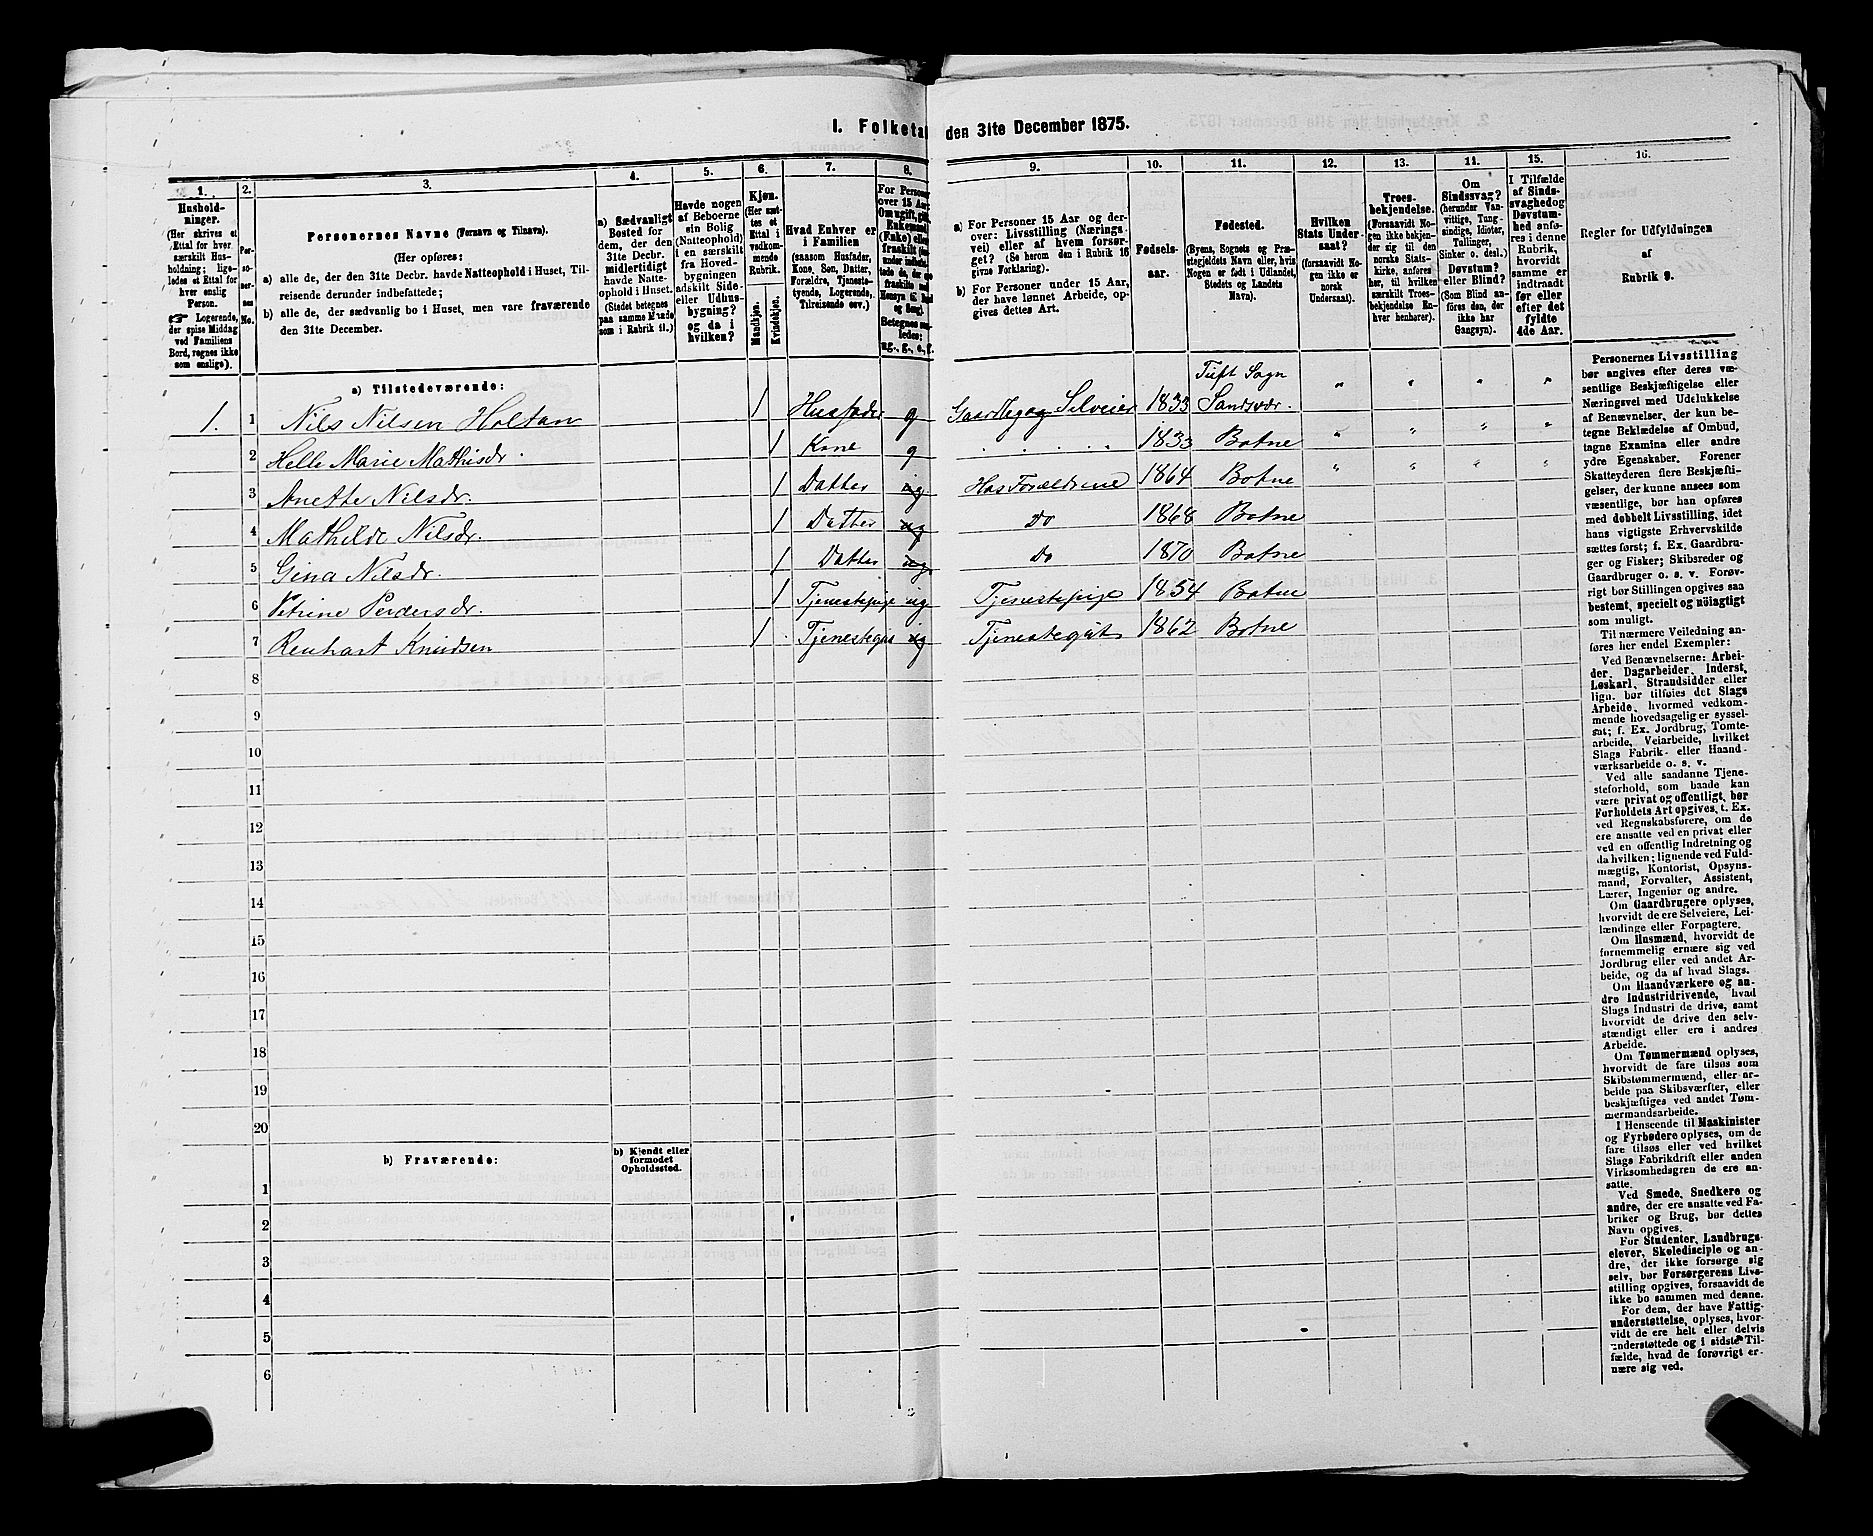 I. Folketæ den 31te December 1875.
1.
2.
3.
4.
5.
6.
7.
8.
9.
10.
11.
12.
13.
14.
15.
16.
Hushold-
ninger.
(Her skrives et
Ettal for hver
særskilt Hus-
holdning; lige-
ledes et Ettal for
hver enslig
Person.
☞ Logerende,
der spise Middag
ved Familiens
Bord, regnes ikke
som enslige).
Per-
so-
ner-
nes
No.
Personernes Navne (Fornavn og Tilnavn).
(Her opføres:
a) alle de, der den 31te Decbr. havde Natteophold i Huset, Til-
reisende derunder indbefattede;
b) alle de, der sædvanlig bo i Huset, men vare fraværende
den 31te December.
a) Sædvanligt
Bosted for
dem, der den
31te Decbr.
midlertidigt
havde Natte-
ophold i Huset.
(Stedet betegnes
paa samme Maade
som i Rubrik 11.)
Havde nogen
af Beboerne
sin Bolig
(Natteophold)
i en særskilt
fra Hoved-
bygningen
adskilt Side-
eller Udhus-
bygning?
og da i
hvilken?
Kjøn.
(Her sæt-
tes et
Ettal i
vedkom-
mende
Rubrik.
Mandkjøn.
Kvindekjøn.
Hvad Enhver er
i Familien
(saasom Husfader,
Kone, Søn, Datter,
Forældre, Tjeneste-
tyende, Logerende,
Tilreisende osv.)
For Personer
over 15 Aar:
Om ugift, gift,
Enkemand
(Enke) eller
fraskilt
Betegnes saa-
ledes:
ug., g., e., f.
a) For Personer 15 Aar og der-
over: Livsstilling (Nærings-
vei) eller af hvem forsør-
get? (Se herom den i Rubrik 16
givne Forklaring).
b) For Personer under 15 Aar,
der have lønnet Arbeide, op-
gives dettes Art.
Fødsels-
aar.
Fødested.
(Byens, Sognets og Præ-
stegjeldets Navn eller, hvis
Nogen er født i Udlandet,
Stedets og Landets
Navn).
Hvilken
Stats Under-
saat?
(forsaavidt No-
gen ikke er
norsk
Undersaat).
Troes-
bekjendelse.
(Forsaavidt No-
gen ikke bekjen-
der sig til den
norske Stats-
kirke, anføres
her, til hvilken
særskilt Troes-
bekjendelse En-
hver henhører).
Om
Sindssvag?
(herunder Van-
vittige, Tung-
sindige, Idioter,
Tullinger,
Sinker o. desl.)
Døvstum?
eller Blind?
(Som Blind an-
føres den, der
ikke har
Gangsyn).
I Tilfælde
af Sinds-
svaghed og
Døvstum-
hed anfø-
res i denne
Rubrik,
hvorvidt
samme er
indtraadt
før eller
efter det
fyldte
4de Aar.
Regler for Udfyldningen
af
Rubrik 9.
a) Tilstedeværende:
1. 1 Nils Nilsen Holtan 1 Husfader g Gaardbr. og Selveier 1833 Tuft Sogn Sandsvær. " " " "
2 Helle Marie Mathisdr. 1 Kone g . . . . 1833 Botne " " " "
3 Anette Nilsdr. 1 Datter ug Hos Forældrene 1864 Botne " " " "
4 Mathilde Nilsdr. 1 Datter ug Do 1868 Botne
5 Gina Nilsdr. 1 Datter ug Do 1870 Botne
6 Petrine Pedersdr. 1 Tjenestepige ug. Tjenestepige 1854 Botne
7 Renhart Knudsen 1 Tjenestegut ug Tjenestegut 1862 Botne
8
9
10
11
12
13
14
15
16
17
18
19
20
b) Fraværende:
b) Kjendt eller
formodet
Opholdssted.
1
2
3
4
5
6
Personernes Livsstilling
bør angives efter deres væ-
sentlige Beskjæftigelse eller
Næringsvei med Udelukkelse
af Benævnelser, der kun be-
tegne Beklædelse af Ombud,
tagne Examina eller andre
ydre Egenskaber. Forener
Skatteyderen flere Beskjæfti-
gelser, der kunne ansees som
væsentlige, bør han opføres
med dobbelt Livsstilling, idet
hans vigtigste Erhvervskilde
sættes først; f. Ex. Gaardbru-
ger og Fisker; Skibsreder og
Gaardbruger o. s. v. Forøv-
rigt bør Stillingen opgives saa
bestemt, specielt og nöiagtigt
som muligt.
Til nærmere Veiledning an-
føres her endel Exempler:
Ved Benævnelserne: Arbei-
der, Dagarbeider, Inderst,
Løskarl, Strandsidder eller
lign. bør tilføies det Slags
Arbeide, hvormed vedkom-
mende hovedsagelig er syssel-
sat; f. Ex. Jordbrug, Tomte-
arbeide, Veiarbeide, hvilket
Slags Fabrik- eller Haand-
værksarbeide o. s. v.
Ved alle saadanne Tjene-
steforhold, som baade kan
være privat og offentligt, bør
Forholdets Art opgives, t. Ex.
ved Regnskabsførere, om de
ere ansatte ved en privat eller
ved en offentlig Indretning og
da hvilken; lignende ved Fuld-
mægtig, Kontorist, Opsyns-
mand, Forvalter, Assistent,
Lærer, Ingeniør og andre.
Om Gaardbrugere oplyses,
hvorvidt de ere Selveiere, Lei-
lændinge eller Forpagtere.
Om Husmænd, hvorvidt de
fornemmelig ernære sig ved
Jordbrug eller ved andet Ar-
beide, og da af hvad Slags.
Om Haandværkere og an-
dre Industridrivende, hvad
Slags Industri de drive, samt
hvorvidt de drive den selv-
stændigt eller ere i andres
Arbeide.
Om Tømmermænd oplyses,
hvorvidt de fare tilsøs som
Skibstømmermænd, eller ar-
beide paa Skibsværfter, eller
beskjæftiges ved andet Tøm-
mermandsarbeide.
I Henseende til Maskinister
og Fyrbødere oplyses, om de
fare tilsøs eller ved hvilket
Slags Fabrikdrift eller anden
Virksomhedsgren de ere an-
satte.
Ved Smede, Snedkere og
andre, der ere ansatte ved Fa-
briker og Brug, bør dettes
Navn opgives.
For Studenter, Landbrugs-
elever, Skoledisciple og an-
dre, der ikke forsørge sig
selv, bør Forsørgerens Livs-
stilling opgives, forsaavidt de
ikke bo sammen med denne.
For dem, der have Fattig-
understøttelse, oplyses, hvor-
vidt de ere helt eller delvis
understøttede og i sidste Til-
fælde, hvad de forøvrigt er-
nære sig ved.